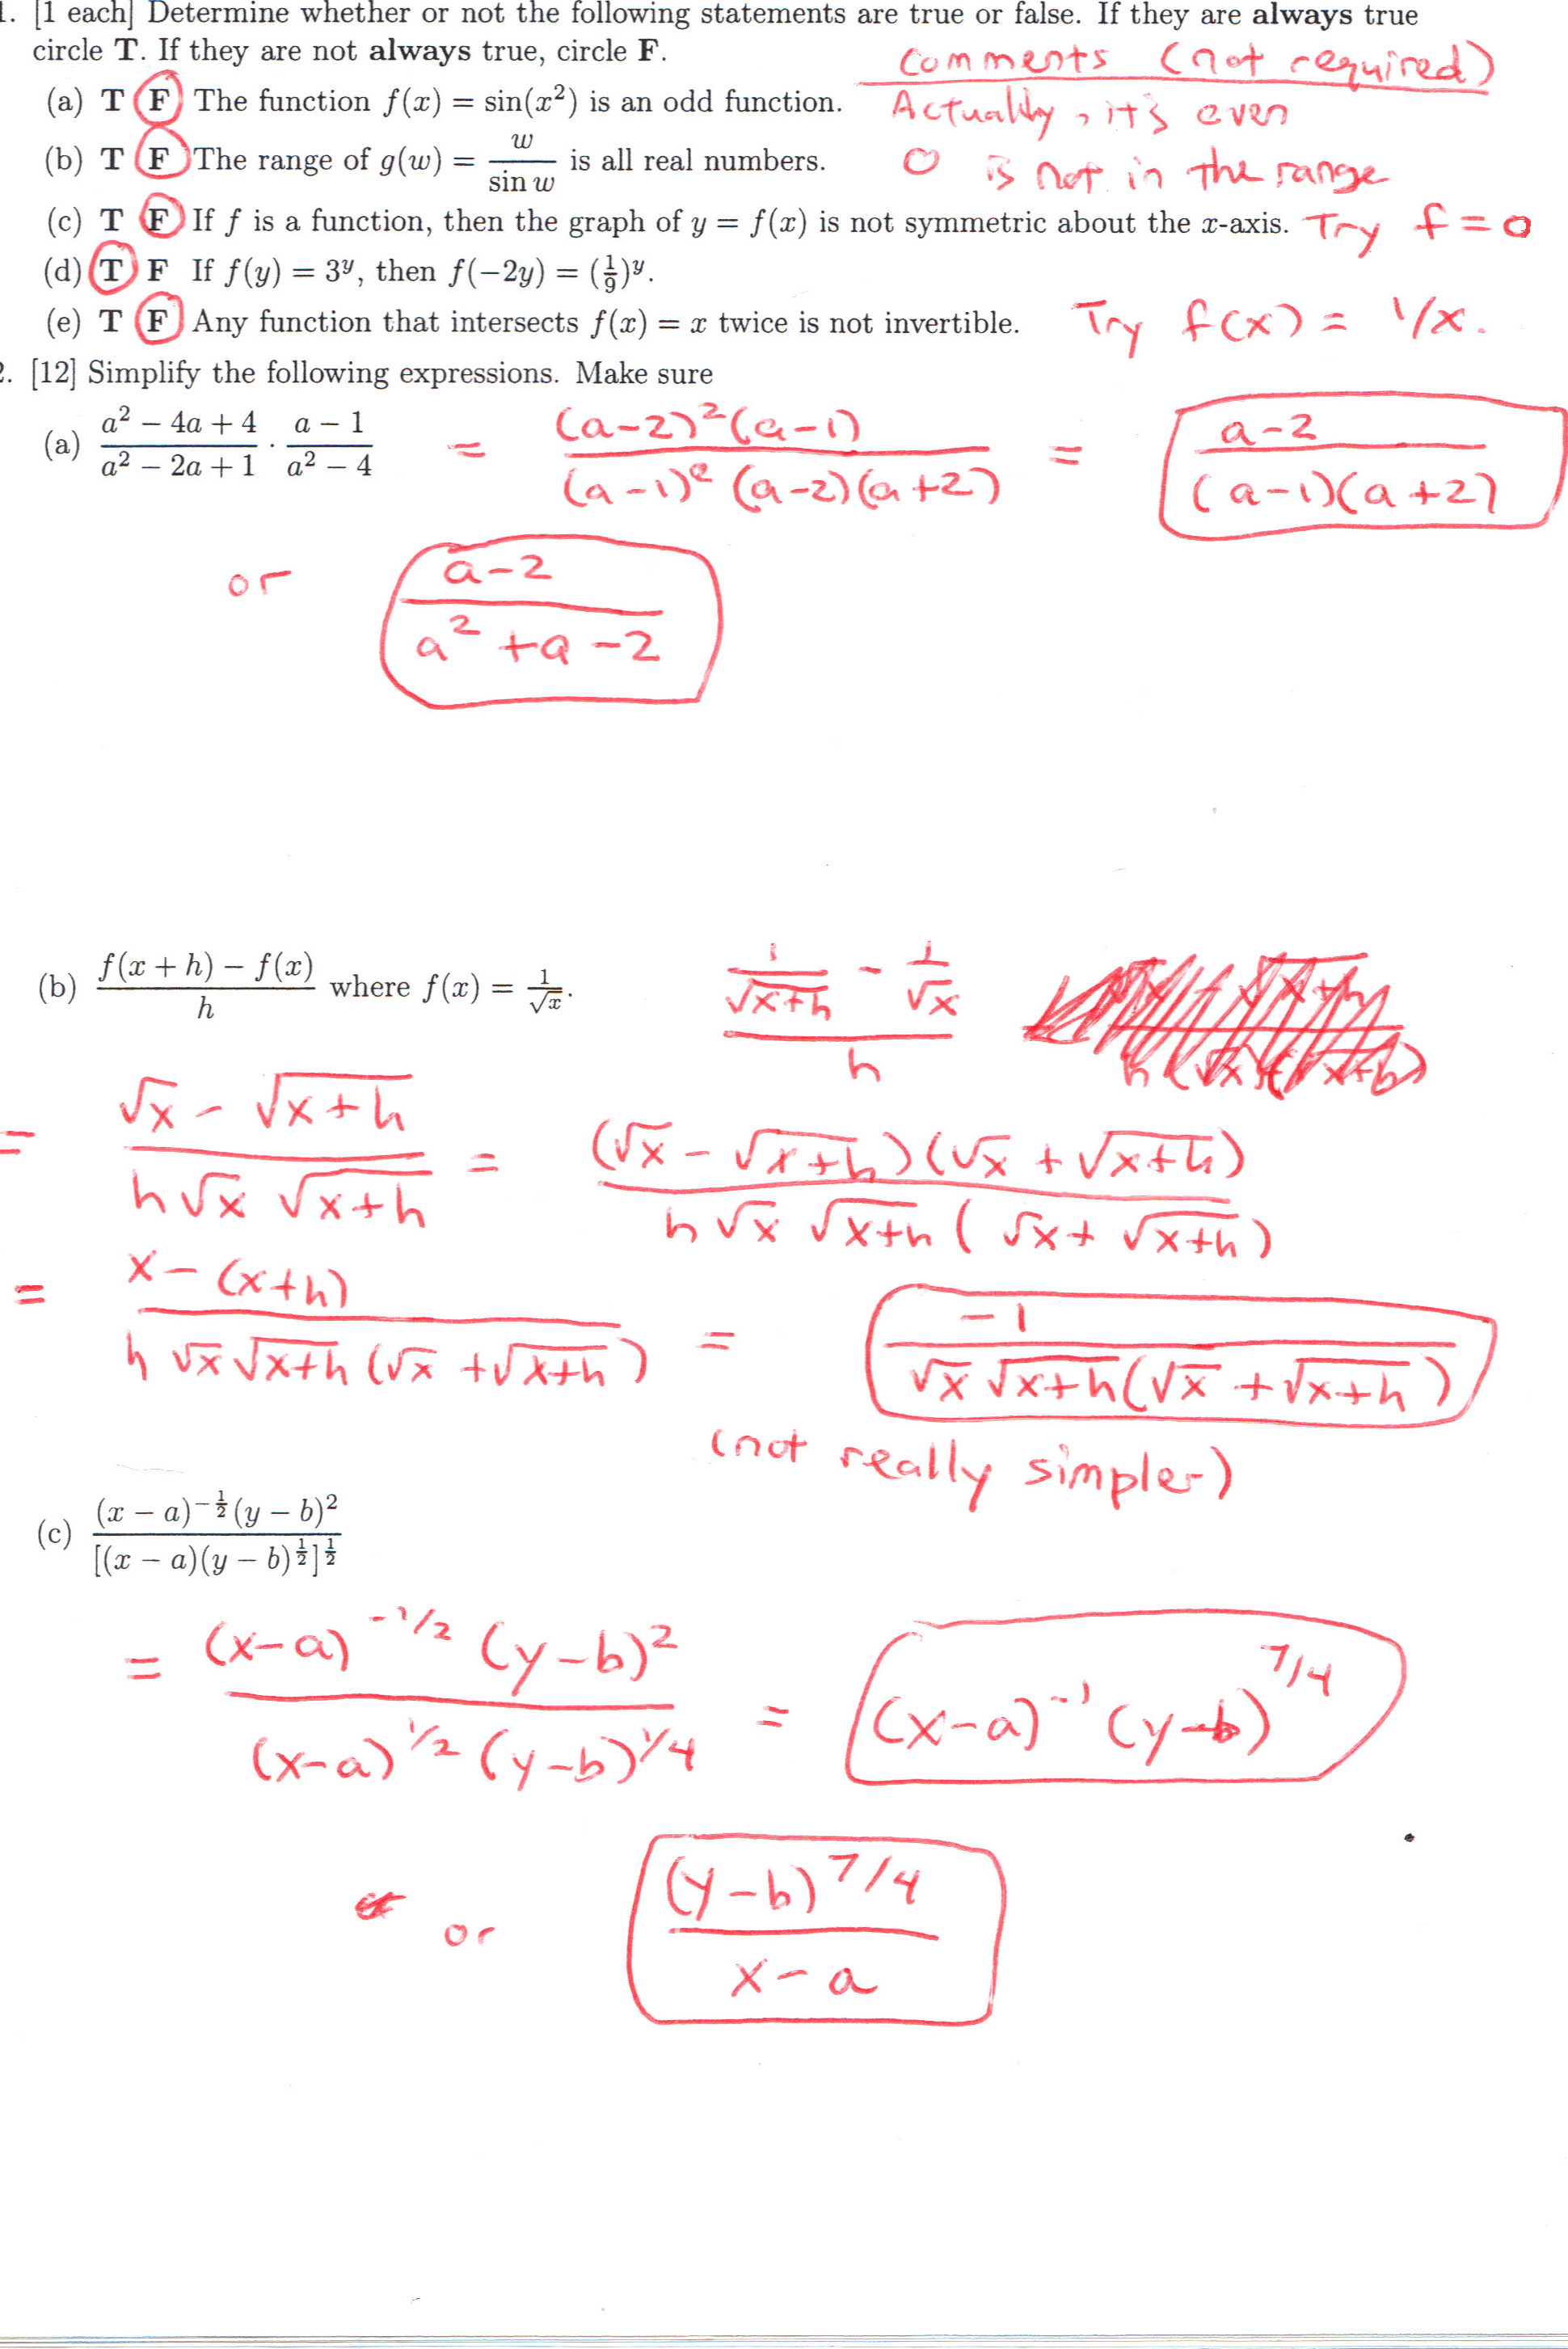 1. [1 each] Determine whether or not the following statements are true or false. If they are always true
circle T. If they are not always true, circle F.
comments (not required)
(a) T F The function f(x) = sin(x²) is an odd function. Actually, it's even
(b) T F The range of g(w) = w/sin w is all real numbers. 0 is not in the range
(c) T F If f is a function, then the graph of y = f(x) is not symmetric about the x-axis. Try f = 0
(d) T F If f(y) = 3^y, then f(−2y) = (1/9)^y.
(e) T F Any function that intersects f(x) = x twice is not invertible. Try f(x) = 1/x.
2. [12] Simplify the following expressions. Make sure
(a) (a² − 4a + 4)/(a² − 2a + 1) · (a − 1)/(a² − 4) = (a-2)²(a-1)/((a-1)²(a-2)(a+2)) = (a-2)/((a-1)(a+2))
or (a-2)/(a²+a-2)
(b) (f(x + h) − f(x))/h where f(x) = 1/√x. (1/√(x+h) - 1/√x)/h
= (√x - √(x+h))/(h√x √(x+h)) = ((√x - √(x+h))(√x + √(x+h)))/(h√x √(x+h) (√x + √(x+h)))
= (x-(x+h))/(h√x√(x+h)(√x+√(x+h))) = -1/(√x√(x+h)(√x+√(x+h)))
(not really simpler)
(c) ((x − a)^(−1/2)(y − b)²)/([(x − a)(y − b)^(1/2)]^(1/2))
= ((x-a)^(-1/2)(y-b)²)/((x-a)^(1/2)(y-b)^(1/4)) = (x-a)^(-1)(y-b)^(7/4)
or (y-b)^(7/4)/(x-a)